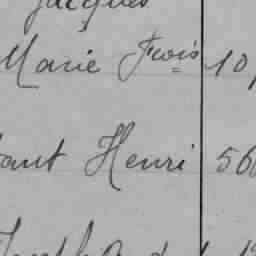 Jacques
Marie Frois 10
ant Henri 56